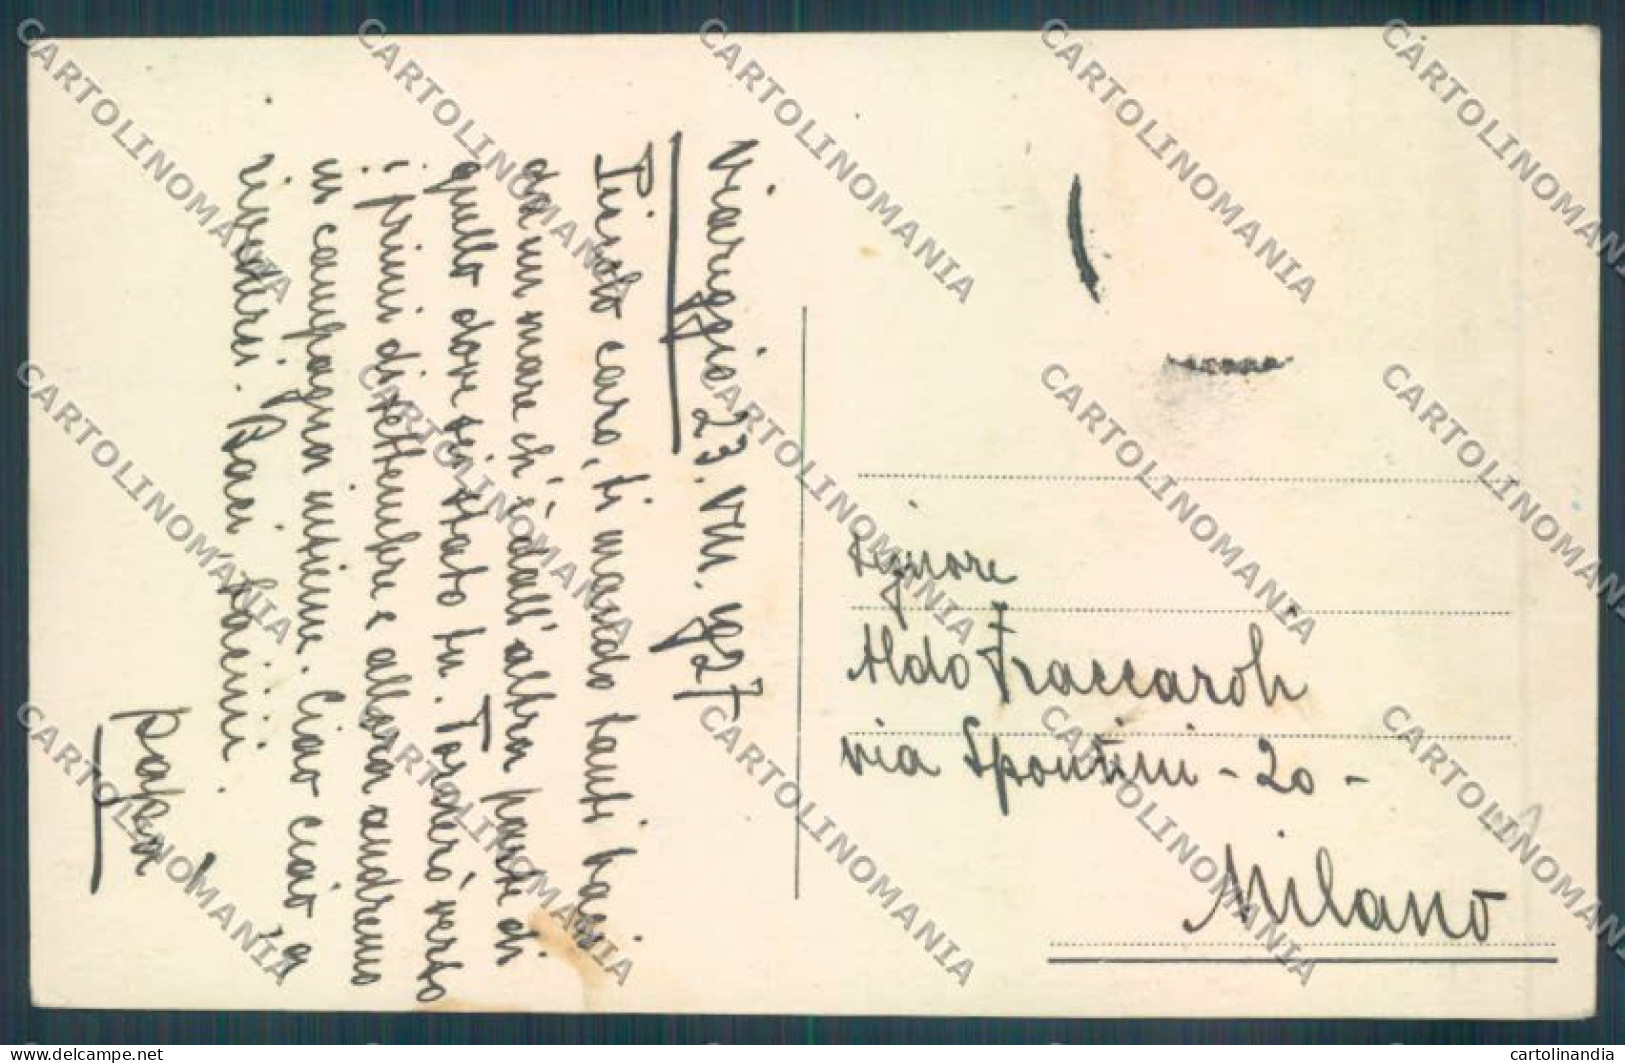 Viareggio 23. VIII. 927
Pierolo caro, ti mando tanti baci
da un mare ch'è dall'altra parte di
quello dove sei stato tu. Tornerò verso
i primi di settembre e allora andremo
in campagna insieme. Ciao ciao, a
rivederci. Baci, bacini.
papà
Signore
Aldo Fraccaroli
via Spontini - 20 -
Milano
CARTOLINOMANIA
www.delcampe.net
cartolinandia